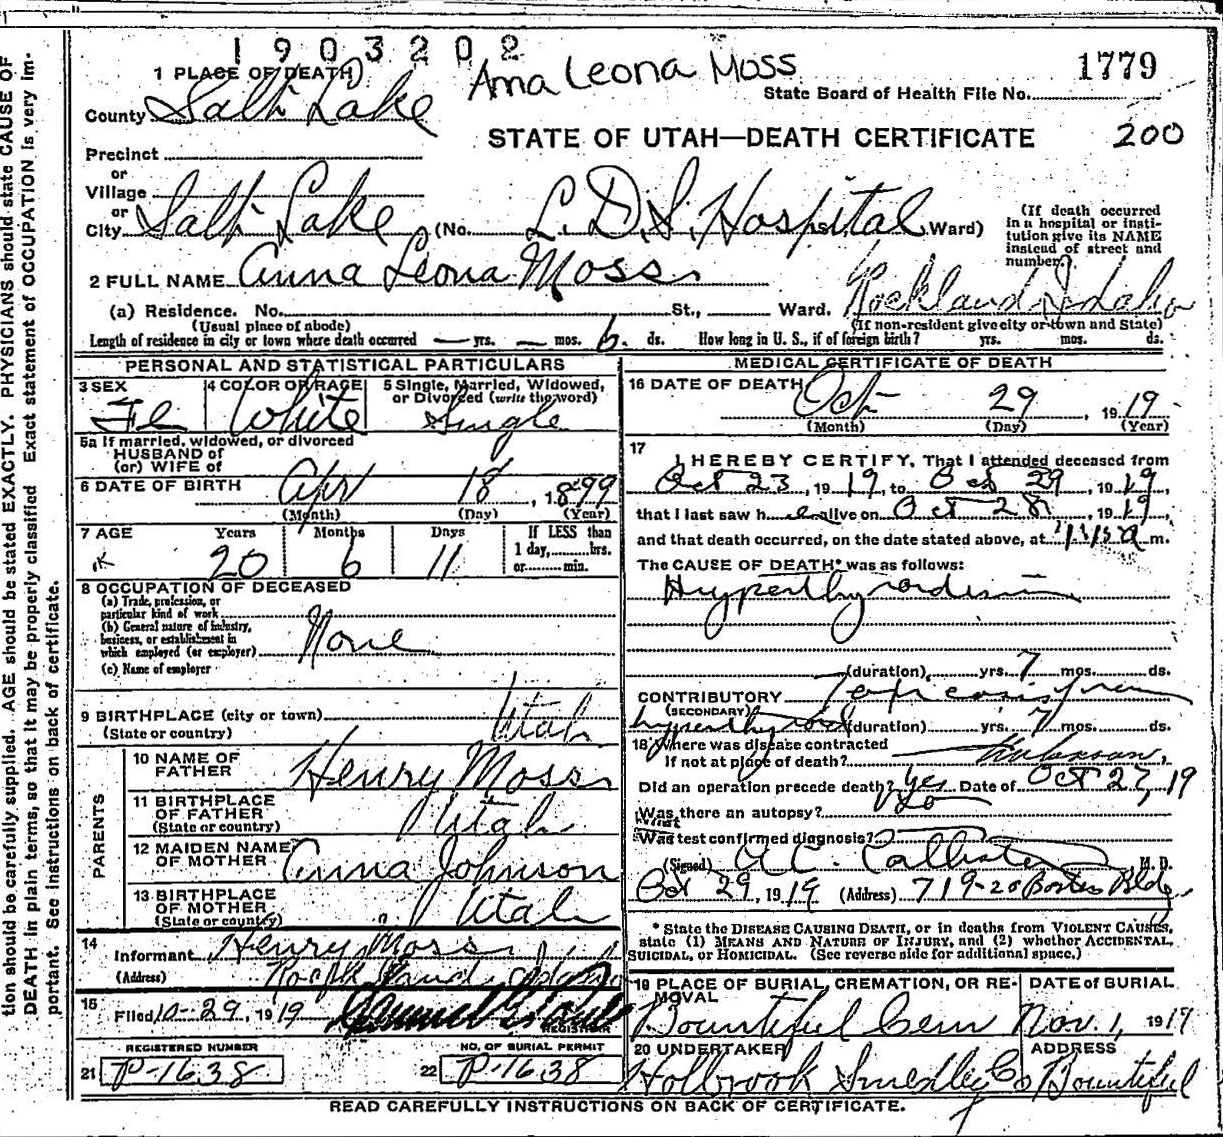 1903202
Ama Leona Moss
1779
1 PLACE OF DEATH
State Board of Health File No.
County Salt Lake
STATE OF UTAH—DEATH CERTIFICATE
200
Precinct
or
Village
or
City Salt Lake (No. L.D.S. Hospital Ward)
(If death occurred in a hospital or insti-
tution give its NAME
instead of street and
number.)
2 FULL NAME Anna Leona Moss
(a) Residence. No. St., Ward. Rockland Idaho
(Usual place of abode) (If non-resident give city or town and State)
Length of residence in city or town where death occurred — yrs. — mos. 6 ds. How long in U. S., if of foreign birth? yrs. mos. ds.
PERSONAL AND STATISTICAL PARTICULARS
3 SEX
4 COLOR OR RACE
5 Single, Married, Widowed,
or Divorced (write the word)
Fe White Single
5a If married, widowed, or divorced
HUSBAND of
(or) WIFE of
6 DATE OF BIRTH Apr 18, 1899
(Month) (Day) (Year)
7 AGE Years Months Days
If LESS than
1 day, hrs.
or min.
20 6 11
8 OCCUPATION OF DECEASED
(a) Trade, profession, or
particular kind of work
(b) General nature of industry,
business, or establishment in
which employed (or employer) None
(c) Name of employer
9 BIRTHPLACE (city or town) Utah
(State or country)
PARENTS
10 NAME OF
FATHER Henry Moss
11 BIRTHPLACE
OF FATHER Utah
(State or country)
12 MAIDEN NAME
OF MOTHER Anna Johnson
13 BIRTHPLACE
OF MOTHER Utah
(State or country)
14
Informant Henry Moss
(Address) Rockland Idaho
15
Filed 10-29, 1919
REGISTRAR
REGISTERED NUMBER NO. OF BURIAL PERMIT
21 P-1638 22 P-1638
MEDICAL CERTIFICATE OF DEATH
16 DATE OF DEATH Oct 29, 1919
(Month) (Day) (Year)
17
I HEREBY CERTIFY, That I attended deceased from
Oct 23, 1919, to Oct 29, 1919,
that I last saw her alive on Oct 28, 1919,
and that death occurred, on the date stated above, at m.
The CAUSE OF DEATH* was as follows:
Hyperthyroidism
(duration) yrs. 7 mos. ds.
CONTRIBUTORY
(SECONDARY)
(duration) yrs. 7 mos. ds.
18 Where was disease contracted
If not at place of death?
Did an operation precede death? Yes Date of Oct 27, 19
Was there an autopsy? No
What test confirmed diagnosis?
(Signed) A.C. Callister, M. D.
Oct 29, 1919 (Address) 719-20 Boston Bldg
* State the DISEASE CAUSING DEATH, or in deaths from VIOLENT CAUSES,
state (1) MEANS AND NATURE OF INJURY, and (2) whether ACCIDENTAL,
SUICIDAL, or HOMICIDAL. (See reverse side for additional space.)
19 PLACE OF BURIAL, CREMATION, OR RE-
MOVAL
DATE of BURIAL
Bountiful Cem Nov. 1, 1919
20 UNDERTAKER ADDRESS
Holbrook Smedley Co Bountiful
READ CAREFULLY INSTRUCTIONS ON BACK OF CERTIFICATE.
tion should be carefully supplied. AGE should be stated EXACTLY. PHYSICIANS should state CAUSE OF
DEATH in plain terms, so that it may be properly classified Exact statement of OCCUPATION is very im-
portant. See instructions on back of certificate.